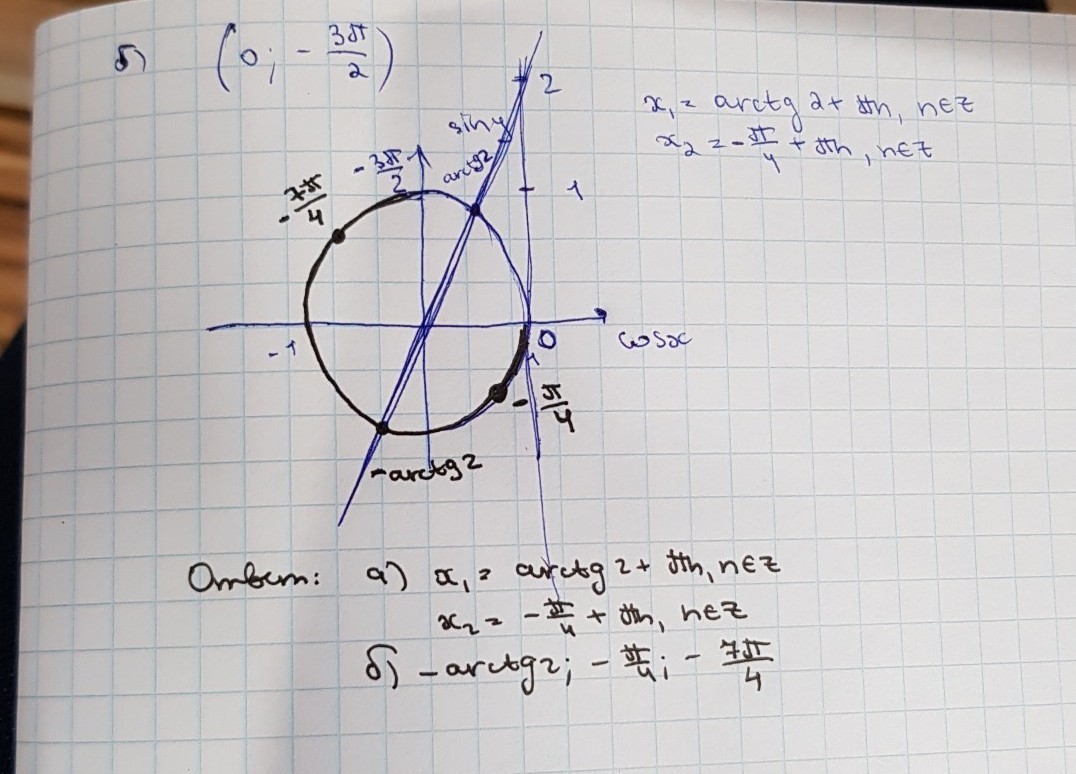 б) (0; - 3π/2)
2
sin y
x₁ = arctg 2 + πn, n∈Z
x₂ = - π/4 + πn, n∈Z
- 3π/2
arctg2
1
- 7π/4
-1
0
1
cosx
- π/4
-arctg2
Ответ: а) x₁ = arctg 2 + πn, n∈Z
x₂ = - π/4 + πn, n∈Z
б) -arctg2; - π/4; - 7π/4